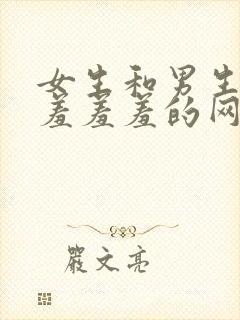 女生和男生
羞羞羞的网
嚴文亮